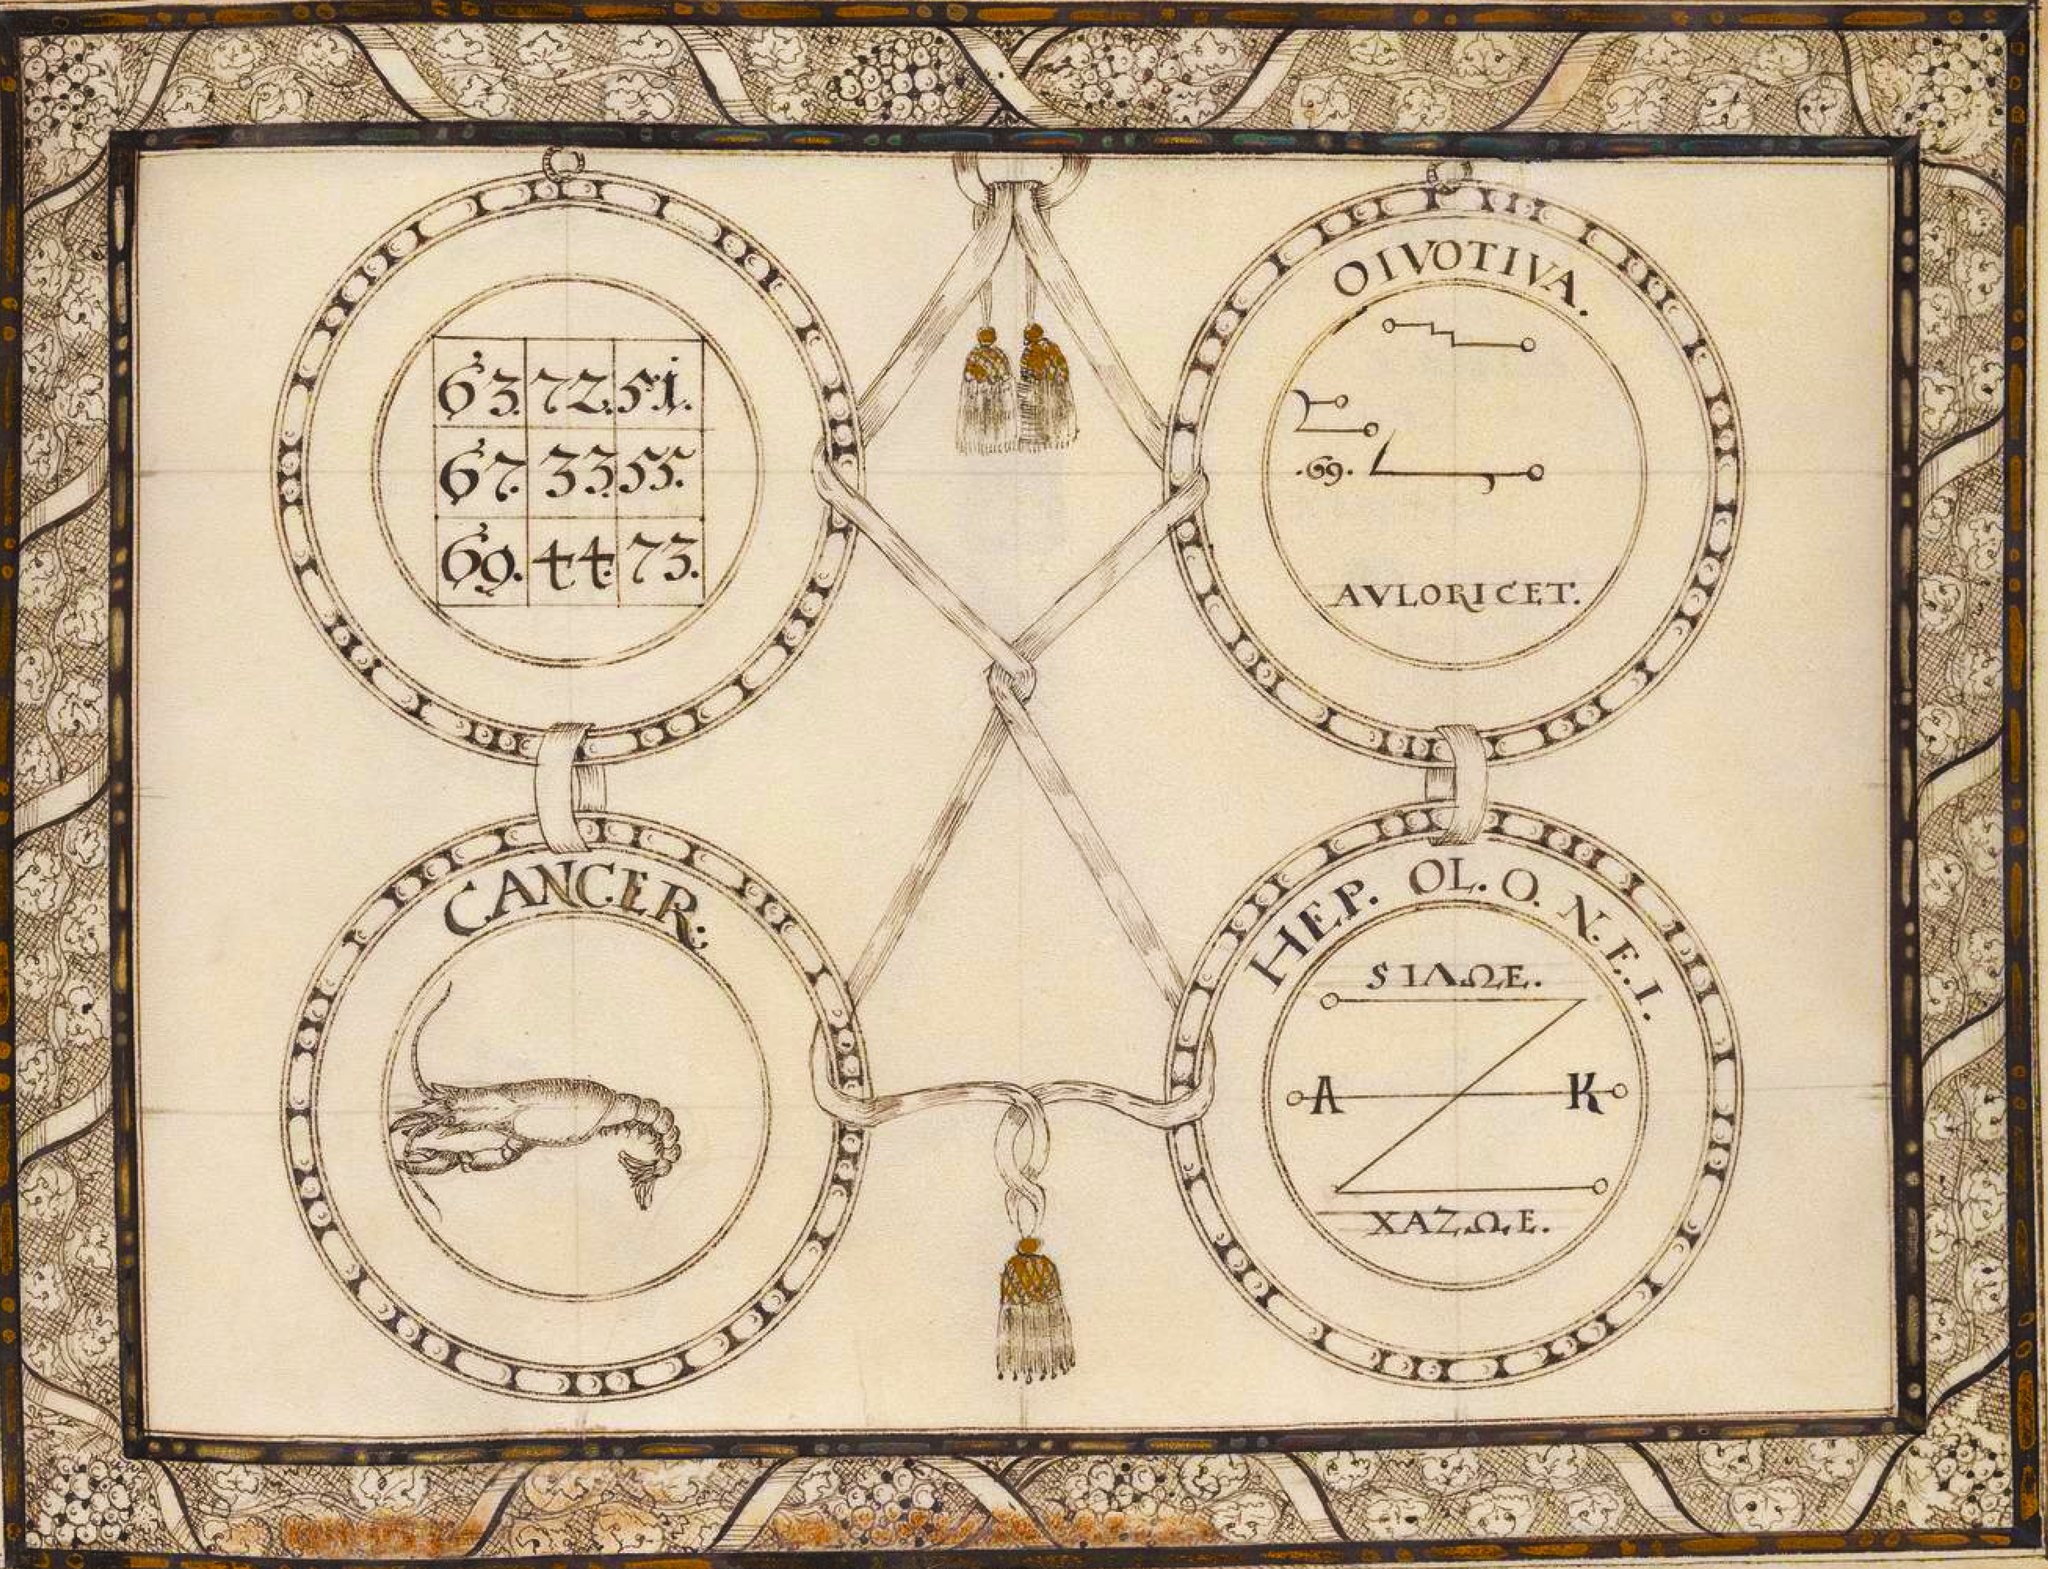 63. 72. 51.
67. 33. 55.
69. 44. 73.
OIVOTIVA.
.69.
AVLORICET.
CANCER:
HEP. OL. O. N. E. I.
SIΛΩE.
A K
XAZΩE.